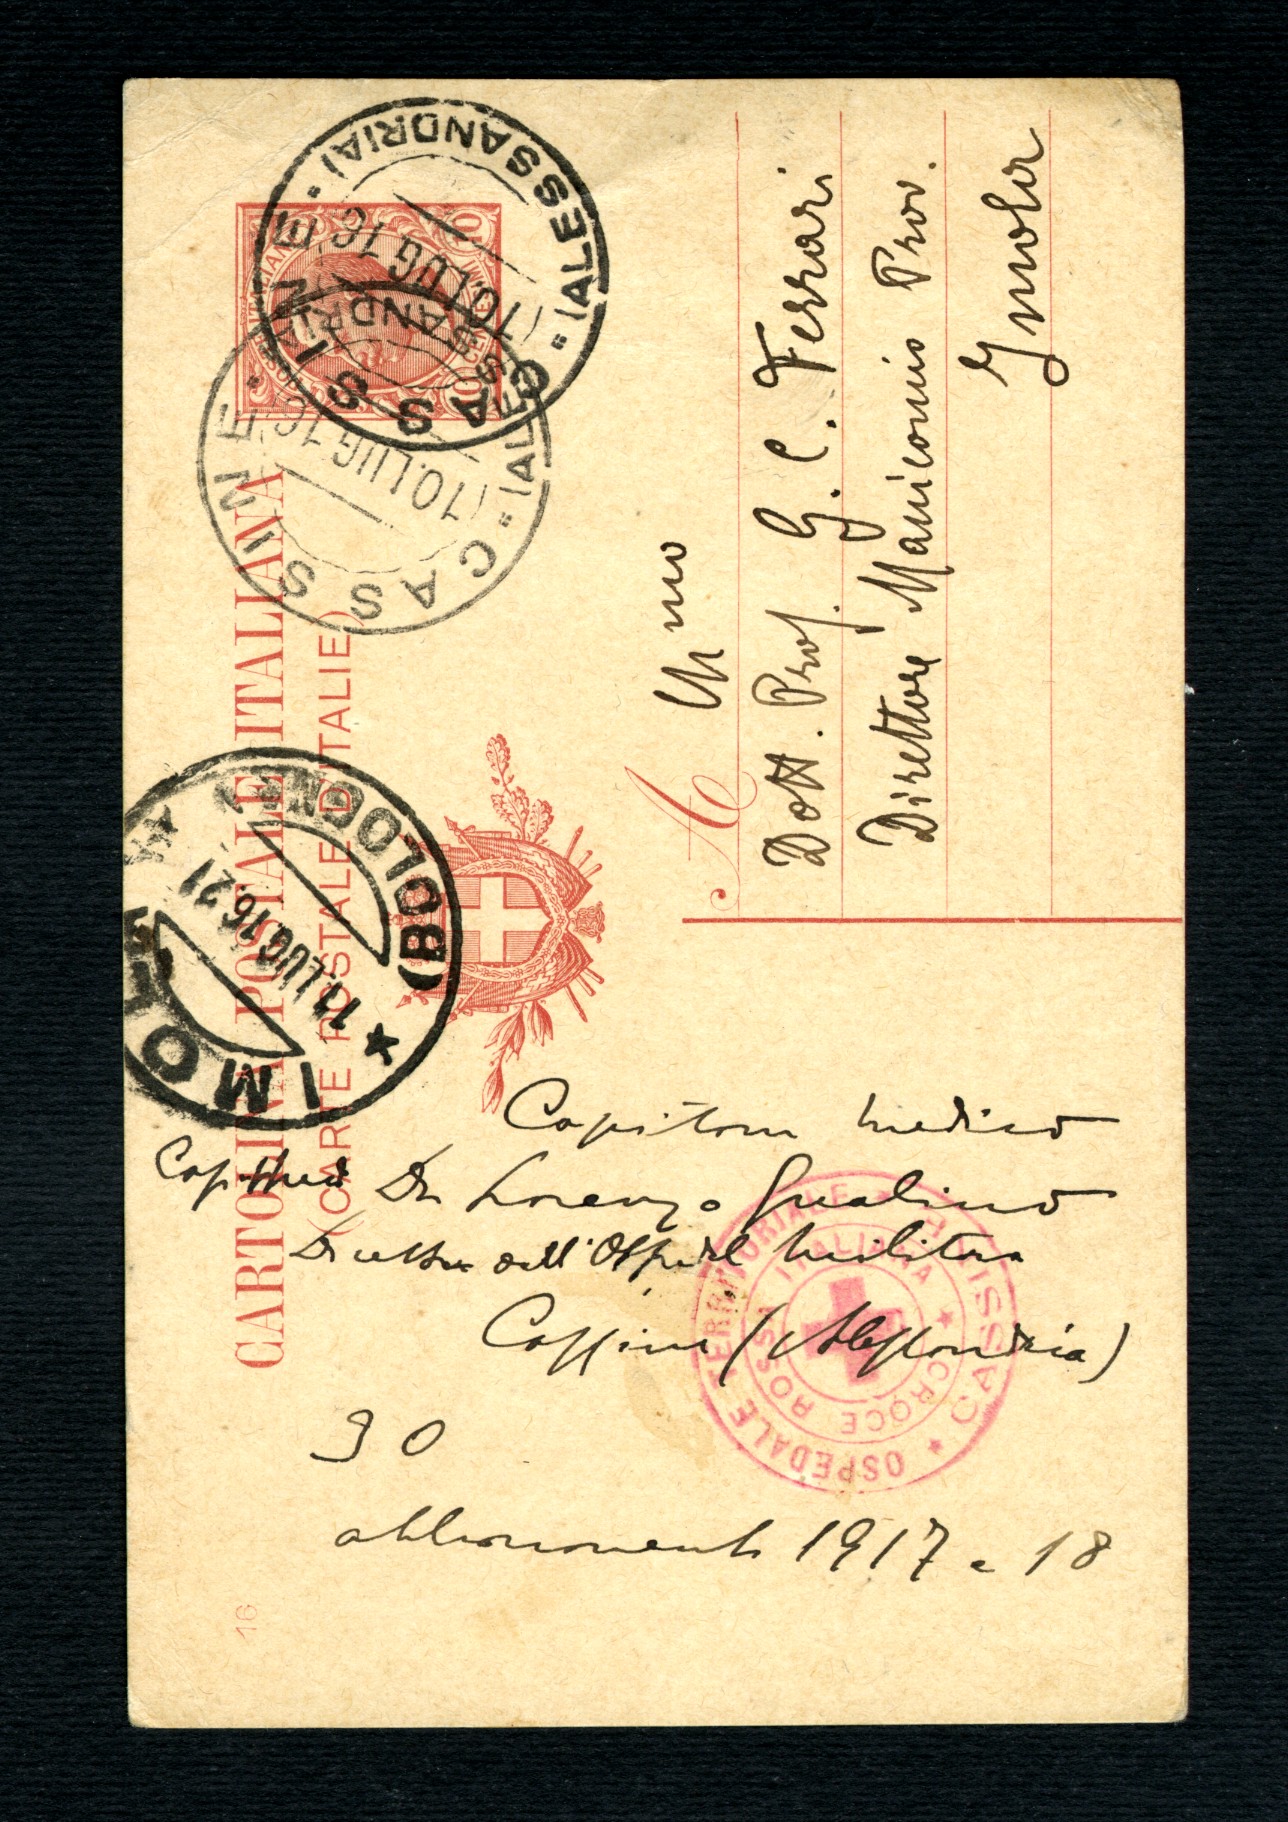 CARTOLINA POSTALE ITALIANA
(CARTE POSTALE D'ITALIE)
10
CASSINE
(ALESSANDRIA)
10.LUG.16
CASSINE
(ALESSANDRIA)
10.LUG.16
IMOLA
(BOLOGNA)
11.LUG.16.21
A
Dott. Prof. G. C. Ferrari
Direttore Manicomio Prov.
Imola
Capitano medico
Cap. Med. Dr Lorenzo Gualino
Direttore dell'Ospedale Militare
Cassine (Alessandria)
OSPEDALE TERRITORIALE
CASSINE
CROCE ROSSA ITALIANA
30
abbonamento 1917 e 18
16